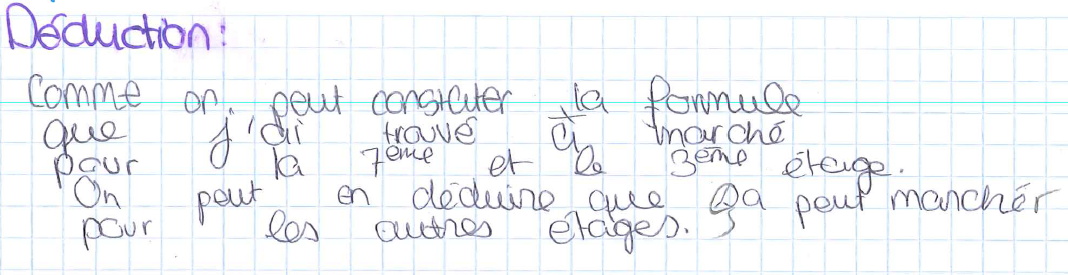 Déduction:
Comme on peut constater la formule
que j'ai trouvé à marché
pour la 7ème et le 3ème étage.
On peut en déduire que ça peut marchér
pour les autres étages.